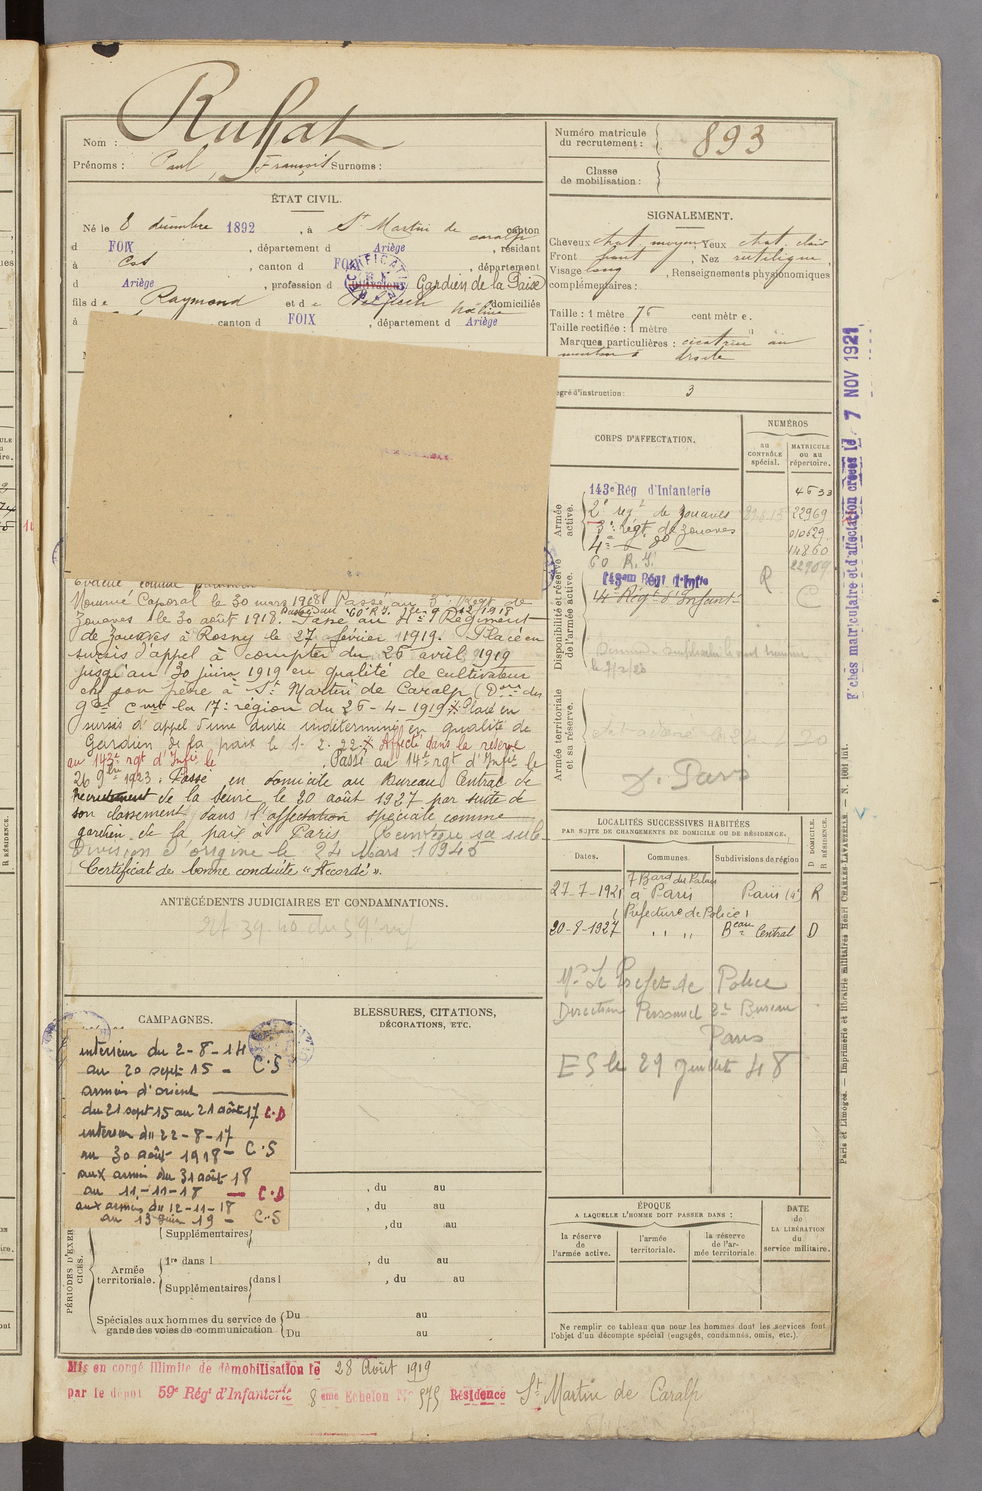 Nom : Ruffat
Prénoms : Paul, François Surnoms :
Numéro matricule du recrutement : 893
Classe de mobilisation :
ÉTAT CIVIL.
Né le 8 décembre 1892, à St Martin de Caralp canton
d FOIX, département d Ariège, résidant
à Cos, canton d FOIX, département
d Ariège, profession d Cultivateur Gardien de la Paix
fils de Raymond et de domiciliés
à canton d FOIX, département d Ariège
SIGNALEMENT.
Cheveux chat. moyen Yeux chat. clair
Front haut, Nez rectiligne,
Visage long, Renseignements physionomiques
complémentaires :
Taille : 1 mètre 75 cent mètre.
Taille rectifiée : 1 mètre
Marques particulières : cicatrice au
menton à droite
Degré d'instruction : 3
CORPS D'AFFECTATION.
NUMÉROS
au CONTRÔLE spécial.
MATRICULE ou au répertoire.
Armée active.
143e Rég d'Infanterie
2e regt de zouaves 22969
3e regt de zouaves
4e — do — 14860
60 R.I. 22969
Disponibilité et réserve de l'armée active.
143em Régt d'Infie
14e Régt d'Infant
R C
Armée territoriale et sa réserve.
D. Paris
Evacué comme
Nommé Caporal le 30 mars 1918. Passé au 3e Regt de
Zouaves le 30 août 1918. Passé au 60e R.I. le 9 12/1918
Passé au 4e Régiment
de Zouaves à Rosny le 27 février 1919. Placé en
sursis d'appel à compter du 26 avril 1919
jusqu'au 30 juin 1919 en qualité de cultivateur
chez son père à St Martin de Caralp (Don du
Gal Cmt la 17e région du 26-4-1919). Placé en
sursis d'appel d'une durée indéterminée en qualité de
Gardien de la paix le 1. 2. 22. Affecté dans la réserve
au 143e rgt d'Infie le Passé au 14e rgt d'Infie le
26 9bre 1923. Passé en domicile au Bureau Central de
recrutement de la Seine le 20 août 1927 par suite de
son classement dans l'affectation spéciale comme
gardien de la paix à Paris. Renvoyé sa sub-
division d'origine le 24 Mars 1945
Certificat de bonne conduite « Accordé ».
ANTÉCÉDENTS JUDICIAIRES ET CONDAMNATIONS.
LOCALITÉS SUCCESSIVES HABITÉES
PAR SUITE DE CHANGEMENTS DE DOMICILE OU DE RÉSIDENCE.
Dates. Communes. Subdivisions de région D DOMICILE. R RÉSIDENCE.
27-7-1921 7 Bard du Palais à Paris Paris (4) R
(Préfecture de Police)
20-8-1927 " " " Beau Central D
Mr Le Préfet de Police
Direction Personnel 2e Bureau
Paris
ES le 29 Juillet 48
CAMPAGNES.
intérieur du 2-8-14
au 20 sept 15 - C.S
armée d'orient
du 21 sept 15 au 21 août 17 C.D
intérieur du 22-8-17
au 30 août 1918 - C.S
aux armées du 31 août 18
au 11-11-18 — C.D
aux armées du 12-11-18
au 13 Juin 19 - C.S
BLESSURES, CITATIONS,
DÉCORATIONS, ETC.
, du au
, du au
Supplémentaires , du au
PÉRIODES D'EXERCICES.
Armée territoriale. 1re dans l , du au
Supplémentaires dans l , du au
Spéciales aux hommes du service de garde des voies de communication Du au
Du au
ÉPOQUE
A LAQUELLE L'HOMME DOIT PASSER DANS :
la réserve de l'armée active.
l'armée territoriale.
la réserve de l'armée territoriale.
DATE de LA LIBÉRATION du service militaire.
Ne remplir ce tableau que pour les hommes dont les services font
l'objet d'un décompte spécial (engagés, condamnés, omis, etc.).
Mis en congé illimité de démobilisation le 28 Août 1919
par le dépôt 59e Régt d'Infanterie 8eme Echelon No 575 Résidence St Martin de Caralp
Fiches matriculaire et d'affectation créées le 7 NOV 1921
Paris et Limoges. — Imprimerie et librairie militaires Henri CHARLES-LAVAUZELLE. — N. 1001 int.
R RÉSIDENCE.